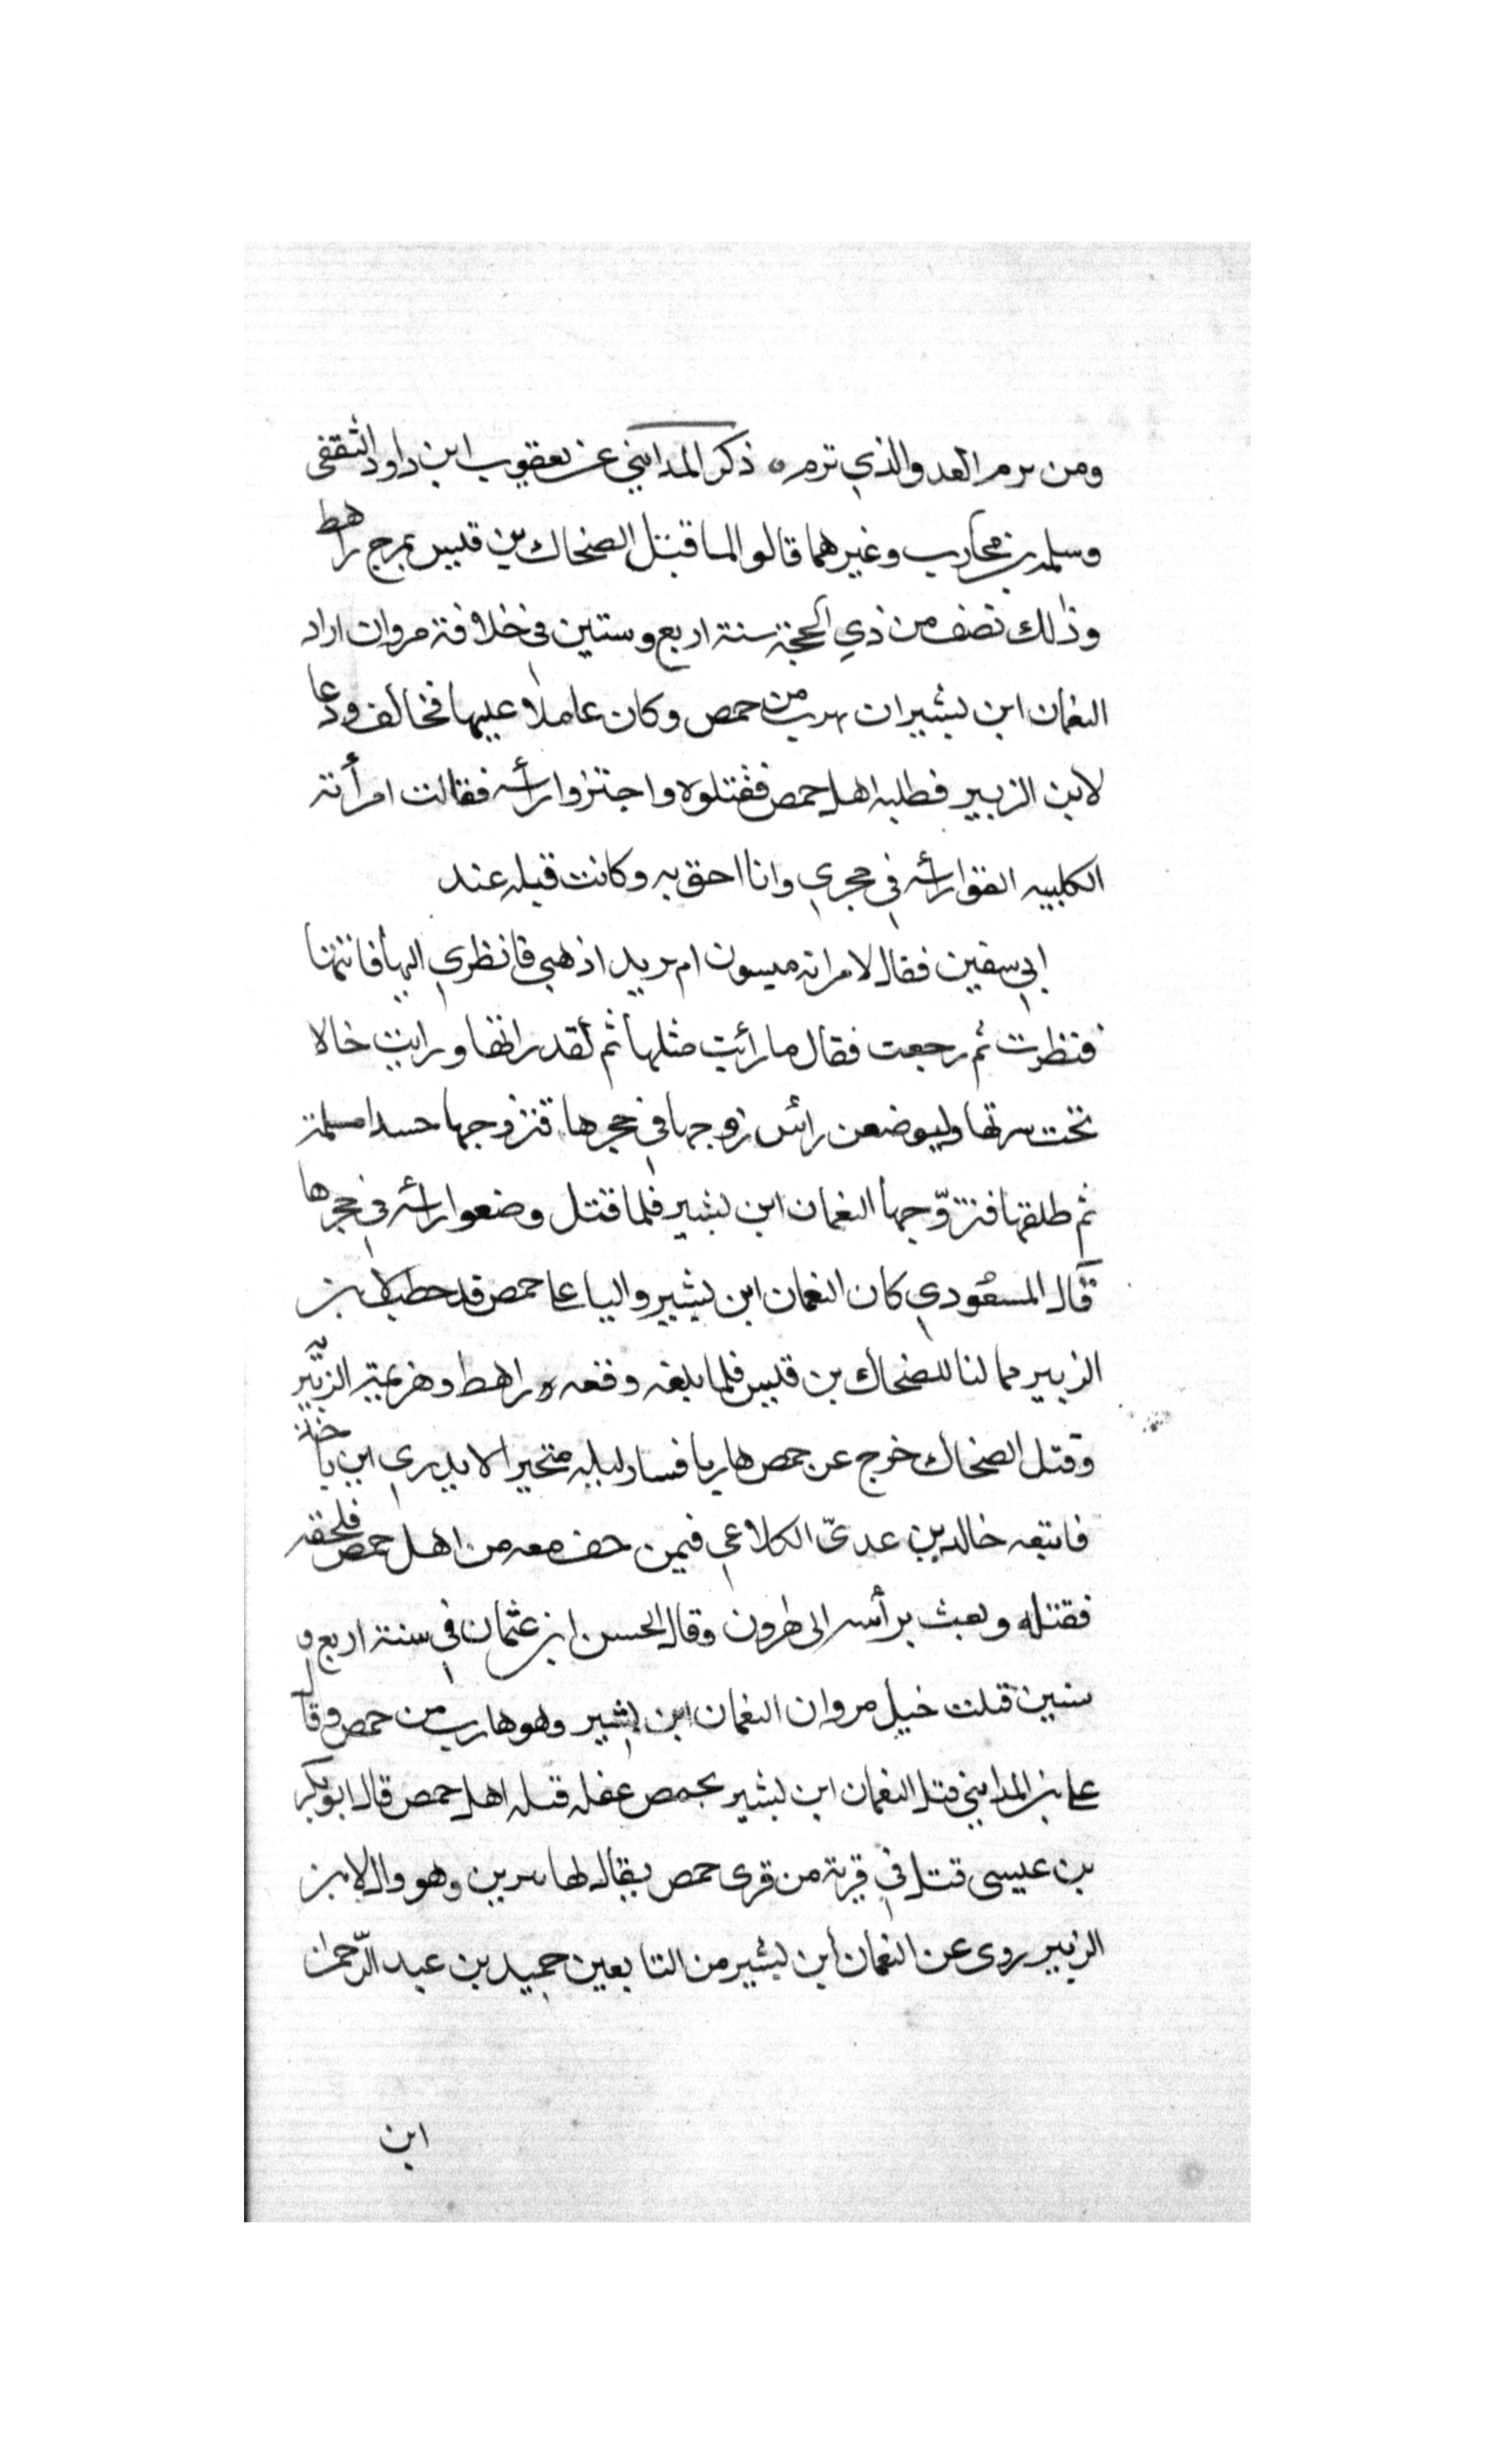 ومن يرم القد والذي ترم ذكر المدايني عن يعقوب ابن داود الثقفى
وسلمة بن محارب وغيرهما قالوا لما قتل الضحاك بن قيس بمرج راهط
وذالك نصف من ذي الحجة سنة اربع وستين في خلافة مروان اراد
النعمان ابن بشير ان يهرب من حمص وكان عاملا عليها فخالف ودعا
لابن الزبير فطلبه اهل حمص فقتلوه واجتزوا رأسه فقالت امرأته
الكلبيه القوا رأسه في حجري وانا احق به وكانت قبله عند
ابي سفين فقال لامراته ميسون ام يزيد اذهبي فانظري اليها فاتتها
فنظرت ثم رجعت فقال ما رأيت مثلها ثم لقد ورايت خالا
تحت سرتها وليوضعن رائس زوجها في حجرها فتزوجها مسلمة
ثم طلقها فتزوّجها النعمان ابن بشير فلما قتل وضعوا رأسه في حجرها
قال المسعودي كان النعمان ابن بشير واليا على حمص قد خطب لابن
الزبير ممالنا للضحاك بن قيس فلما بلغه وقعه راهط وهزيمة الزبير
وقتل الضحاك خرج عن حمص هاربا فسار ليله متحيرا لا يدري اين ياخذ
فاتبعه خالد بن عدىّ الكلاعي فيمن خف معه من اهل حمص فلحقه
فقتله وبعث برأسه الى وقال الحسن ابن عثمان في سنة اربع و
ستين قتلت خيل مروان النعمان ابن بشير وهو هارب من حمص وقال
على بن المدايني قتل النعمان ابن بشير بحمص غفله قتله اهل حمص قال ابو بكر
بن عيسى قتل في قرية من قرى حمص يقال لها وهو وال لابن
الزبير روى عن النعمان ابن بشير من التابعين حميد بن عبد الرّحمن
ابن